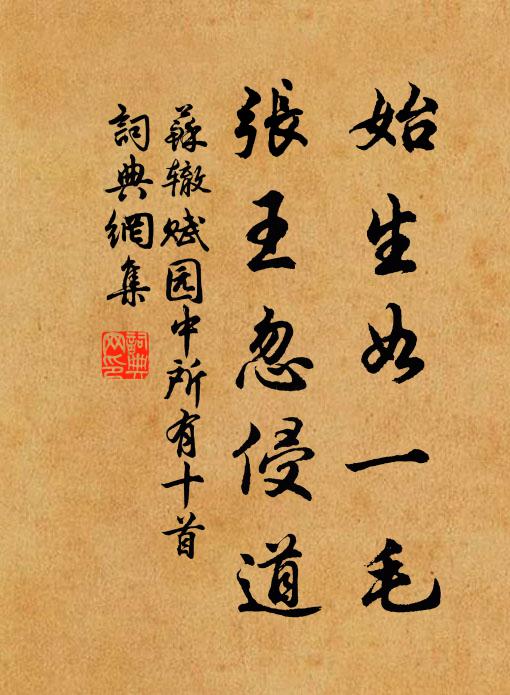 始生如一毛
張王忽侵道
蘇辙赋园中所有十首
詞典網集
詞典网印